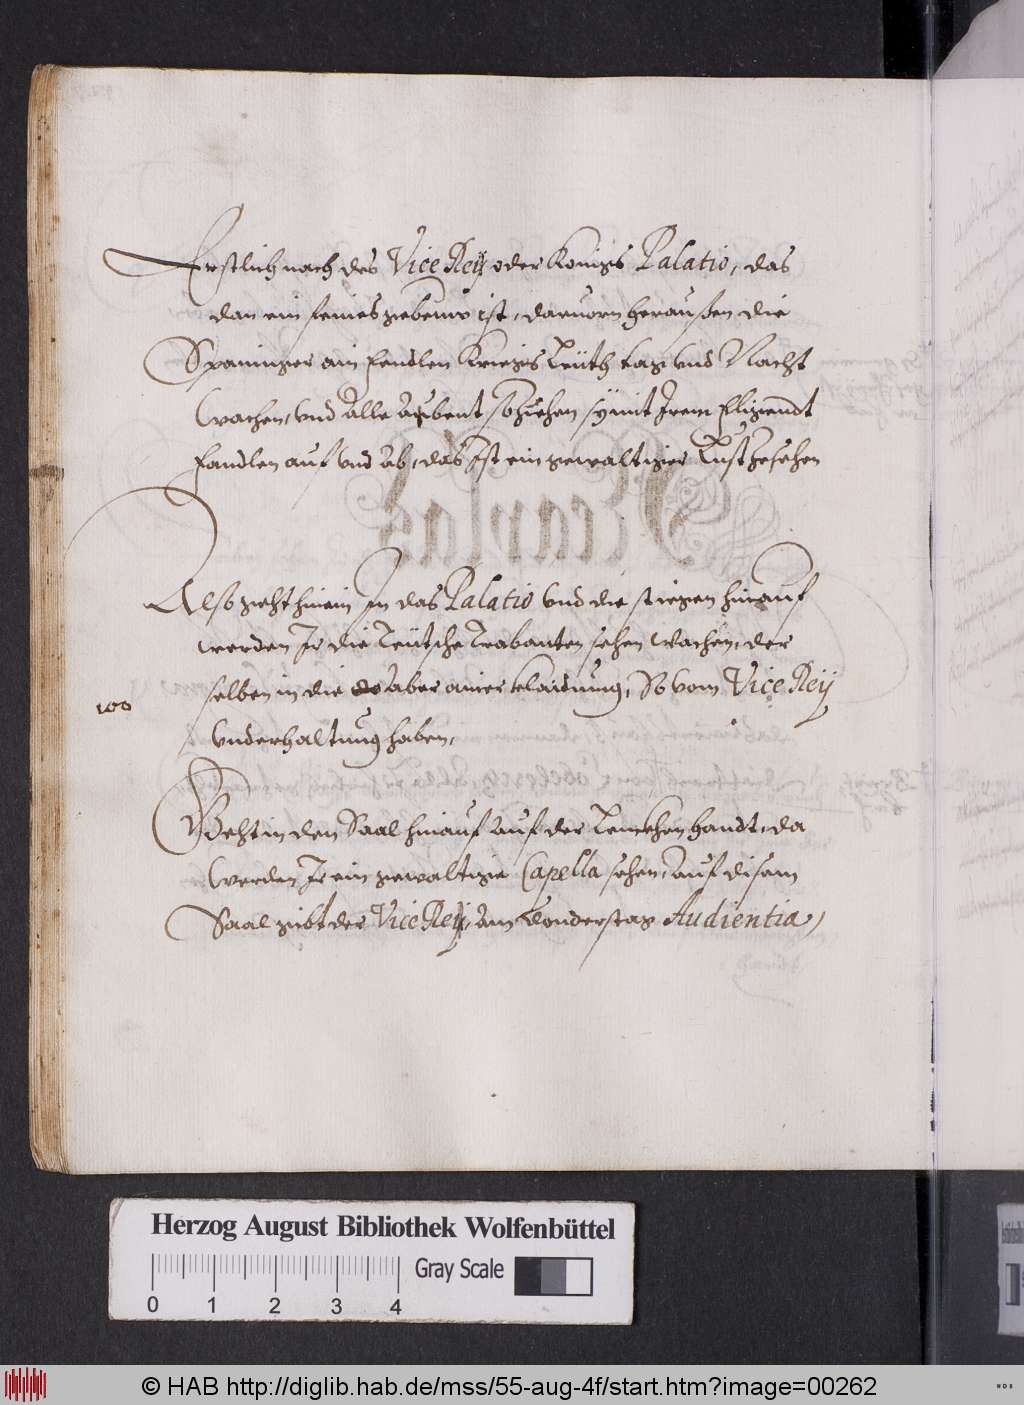 Erstlich nach des Vice Reÿ oder Konigs Palatio, das
dan ein feines gebeuw ist, daruorn heraußen die
Spanniger ain fendlen Kriegs Leüth tag vnd Nacht
wachen, vnd alle Aubent so ziehen sÿ mit Irem fligendt
fandlen auf vnd ab, das Ist ein gewaltiger Lust Zesehen
Also geht hinein In das Palatio vnd die stiegen hinauf
werden Ir die Teütsche Trabanten sehen wachen, der
selben in die aber ainer klaidung, So vom Vice Reÿ
100
vnderhaltung haben,
Geht in den Saal hinauf auf der Lenckhen handt, da
werden Ir ein gewaltige Capella sehen, auf disem
Saal gibt der Vice Reÿ, am Donderstag Audientia,
Herzog August Bibliothek Wolfenbüttel
Gray Scale
0 1 2 3 4
© HAB http://diglib.hab.de/mss/55-aug-4f/start.htm?image=00262